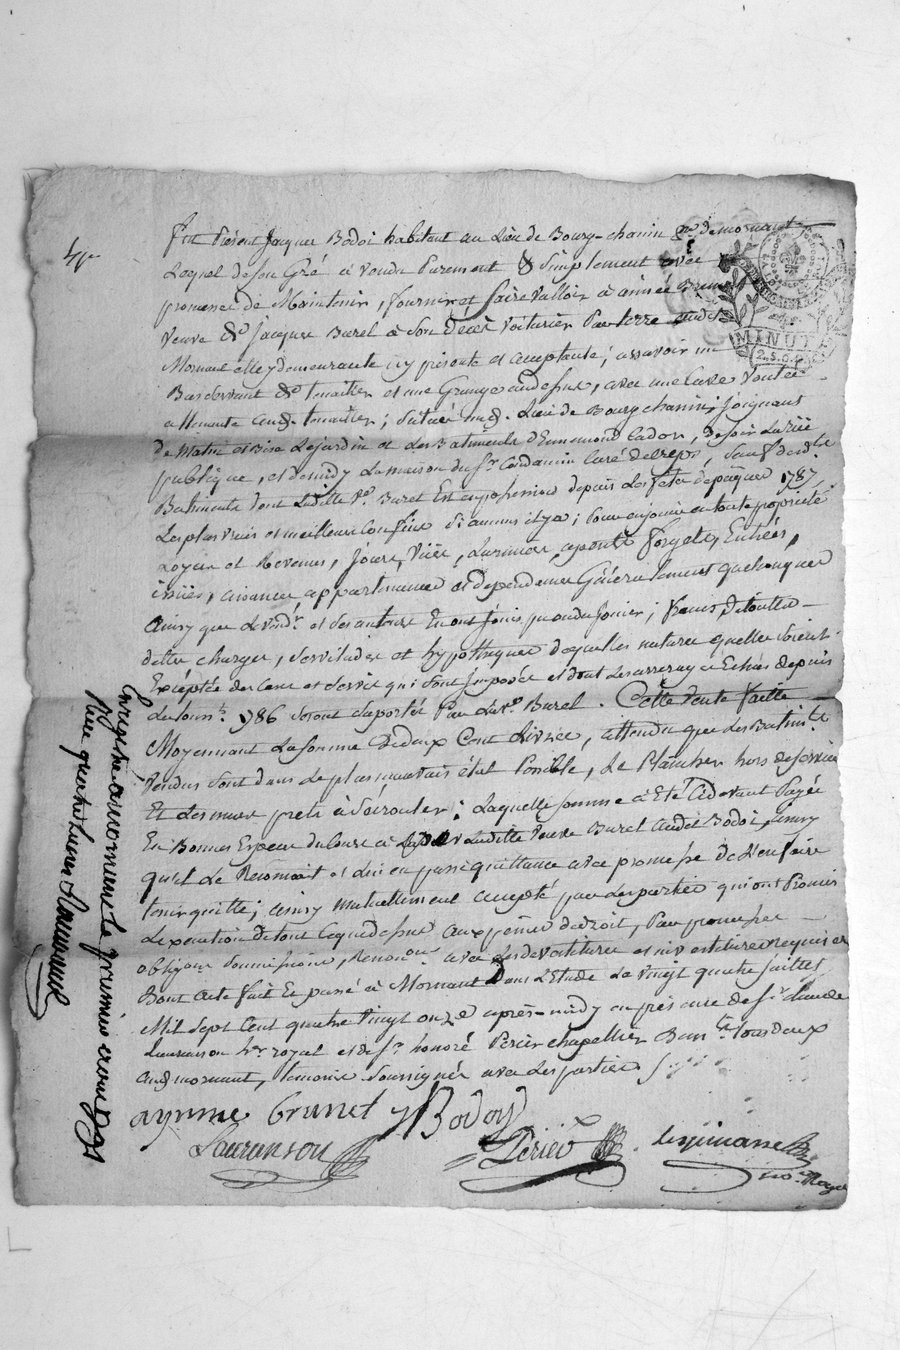 Fut Présent Jacques Bodoi habitant au Lieu de Bourg-chanin psse de mornant
Lequel de son Gré à vendu Purement & Simplement avec
promesse de Maintenir, fournir et faire valloir à
veuve de Jacques Burel à Son Decès voiturier Par terre
Mornant elle y demeurante icy présente et acceptante; assavoir un
Bas servant de tenailler et une Grange au dessus, avec une Cave voutée
attenante aud. tenailler; situés aud. Lieu de Bourg chanin; joignants
de Matin et Bise Le jardin et Les Batiments d'Ennemond Cador, de soir La rüe
publique, et de midy La maison du Sr. Curé de
Batiments dont Laditte ve. Burel Est en possession depuis Les fetes de pâques 1787,
Les plus vrais et meilleurs Confins Si aucuns il y a; Pour en jouir en toute propriété
Loyers et Revenus, Jours, Vües, Larmiers, Forgets, Entrées,
issües, aisances appartenances et dependances Généralement quelconques
Ainsy que Le vendr. et ses auteurs En ont Jouis pu ou du Jouir; francs De toutes
dettes, charges, servitudes et hypotheques de quelles natures quelles soient
Excéptée du Cens et servis qui Sont Imposés et dont Les arrerages Echus depuis
1786 Seront suportés Par La ve. Burel. Cette vente faitte
Moyennant La somme De deux Cent Livres, attendu que Les Batimts.
vendus sont dans Le plus mauvais état Possible, Le Plancher hors de service
Et Les murs prets à S'ecrouler; Laquelle somme à Eté Cidevant Payée
En Bonnes Especes du Cours Laditte Veuve Burel audit Bodoi, ainsy
qu'il Le Reconnoit et Lui en passe quittance avec promesse De L'en faire
tenir quitte; ainsy mutuellement accepté par Les parties qui ont Promis
L'exécution De tout Ce que dessus aux peines de droit, Par promesses
obligaons Soumissions, Renonons avec Les devestitures et investitures requises
Dont Acte Fait et passé à Mornant Dans L'Etude Le vingt quatre juillet
Mil Sept Cent quatre Vingt onze après-midy en présence de Sr. Claude
Lauranson hr. royal et de Sr. honoré Perier chapellier Demts. tous deux
aud. mornant, temoins Soussignés avec Les parties
aymme Brunet JBodoy
Lauranson Périer Lespinasse
no. Royal
Enregistré a mornant Le premier aout 1791
Recu quatre Livres
MINUTE